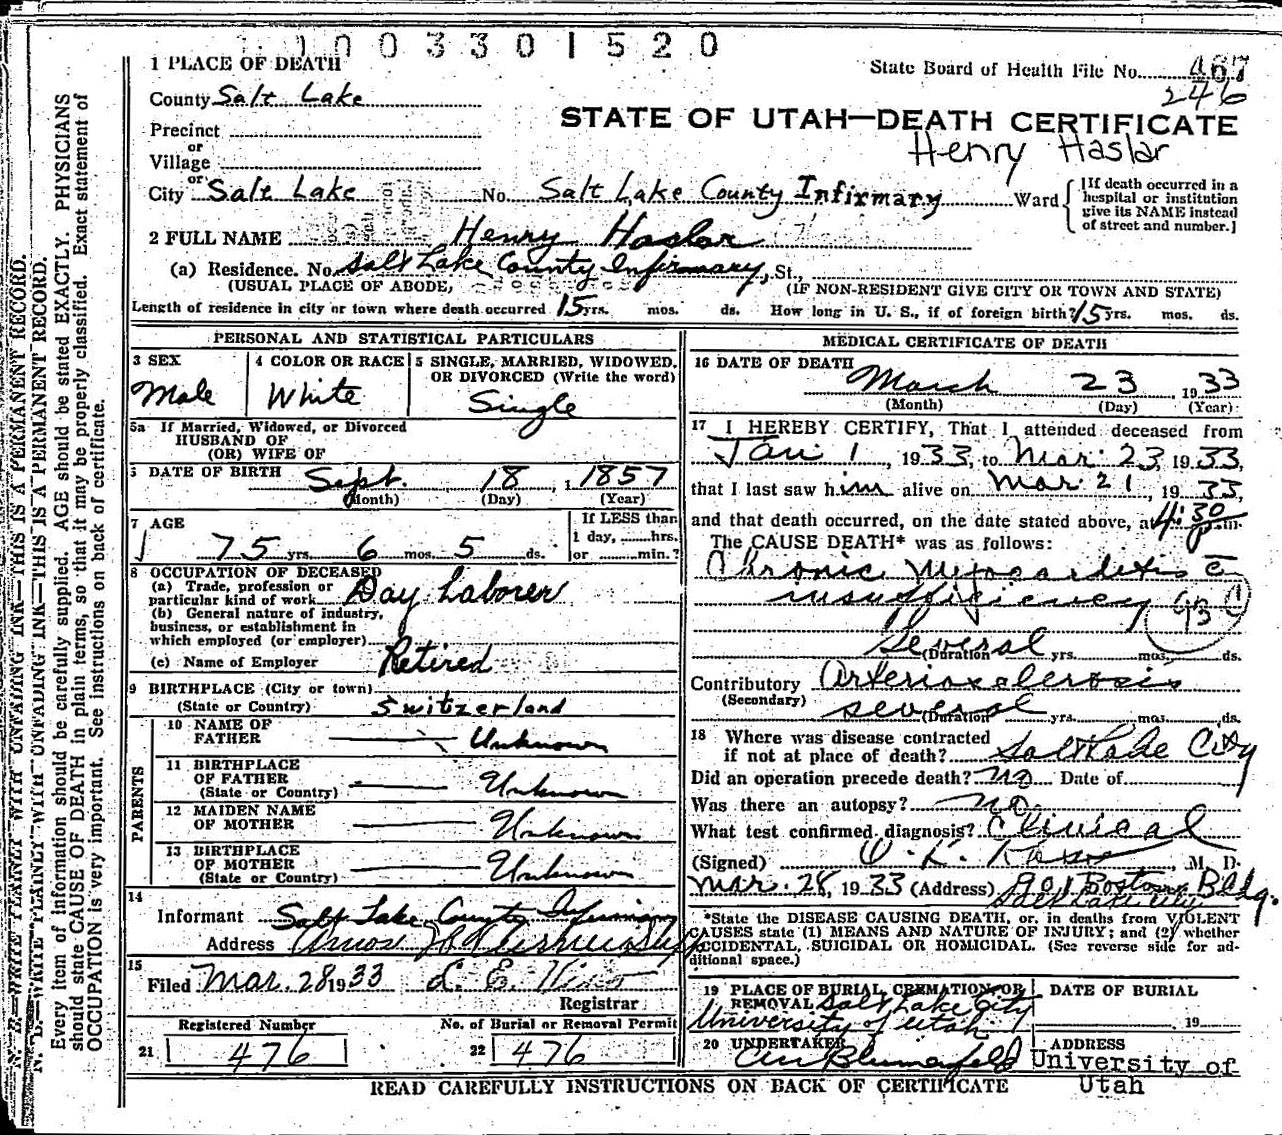 1003301520
1 PLACE OF DEATH
State Board of Health File No. 467
246
County Salt Lake
STATE OF UTAH—DEATH CERTIFICATE
Henry Haslar
Precinct
or
Village
or
City Salt Lake No. Salt Lake County Infirmary Ward
[If death occurred in a hospital or institution give its NAME instead of street and number.]
2 FULL NAME Henry Haslar
(a) Residence. No. Salt Lake County Infirmary, St.,
(USUAL PLACE OF ABODE, (IF NON-RESIDENT GIVE CITY OR TOWN AND STATE)
Length of residence in city or town where death occurred 15 yrs. mos. ds. How long in U. S., if of foreign birth? 15 yrs. mos. ds.
PERSONAL AND STATISTICAL PARTICULARS
3 SEX
Male
4 COLOR OR RACE
White
5 SINGLE, MARRIED, WIDOWED, OR DIVORCED (Write the word)
Single
5a If Married, Widowed, or Divorced
HUSBAND OF
(OR) WIFE OF
DATE OF BIRTH Sept. 18, 1857
(Month) (Day) (Year)
7 AGE
75 yrs. 6 mos. 5 ds.
If LESS than
1 day, hrs.
or min.?
8 OCCUPATION OF DECEASED
(a) Trade, profession or
particular kind of work Day Laborer
(b) General nature of industry,
business, or establishment in
which employed (or employer)
(c) Name of Employer Retired
9 BIRTHPLACE (City or town)
(State or Country) Switzerland
PARENTS
10 NAME OF
FATHER Unknown
11 BIRTHPLACE
OF FATHER
(State or Country) Unknown
12 MAIDEN NAME
OF MOTHER Unknown
13 BIRTHPLACE
OF MOTHER
(State or Country) Unknown
14
Informant Salt Lake County Infirmary
Address
15
Filed Mar. 28 1933 L. E.
Registrar
Registered Number
21 476
No. of Burial or Removal Permit
22 476
MEDICAL CERTIFICATE OF DEATH
16 DATE OF DEATH
March 23, 1933
(Month) (Day) (Year)
17 I HEREBY CERTIFY, That I attended deceased from
Jan 1, 1933, to Mar. 23, 1933,
that I last saw him alive on Mar. 21, 1933,
and that death occurred, on the date stated above, at 4:30 p.m.
The CAUSE DEATH* was as follows:
Chronic Myocarditis c̄
insufficiency 93 C
Several
(Duration yrs. mos. ds.
Contributory Arteriosclerosis
(Secondary) several
(Duration yrs. mos. ds.
18 Where was disease contracted
if not at place of death? Salt Lake City
Did an operation precede death? no Date of
Was there an autopsy? no
What test confirmed diagnosis? Clinical
(Signed) M. D.
Mar. 28, 1933 (Address) 901 Boston Bldg.
Salt Lake City
*State the DISEASE CAUSING DEATH, or, in deaths from VIOLENT
CAUSES state (1) MEANS AND NATURE OF INJURY; and (2) whether
ACCIDENTAL, SUICIDAL OR HOMICIDAL. (See reverse side for additional space.)
19 PLACE OF BURIAL, CREMATION, OR
REMOVAL Salt Lake City
University of Utah
DATE OF BURIAL
19
20 UNDERTAKER
Blumenfeld
ADDRESS
University of
Utah
READ CAREFULLY INSTRUCTIONS ON BACK OF CERTIFICATE
N. B.—WRITE PLAINLY WITH UNFADING INK—THIS IS A PERMANENT RECORD.
Every item of information should be carefully supplied. AGE should be stated EXACTLY. PHYSICIANS
should state CAUSE OF DEATH in plain terms, so that it may be properly classified. Exact statement of
OCCUPATION is very important. See instructions on back of certificate.